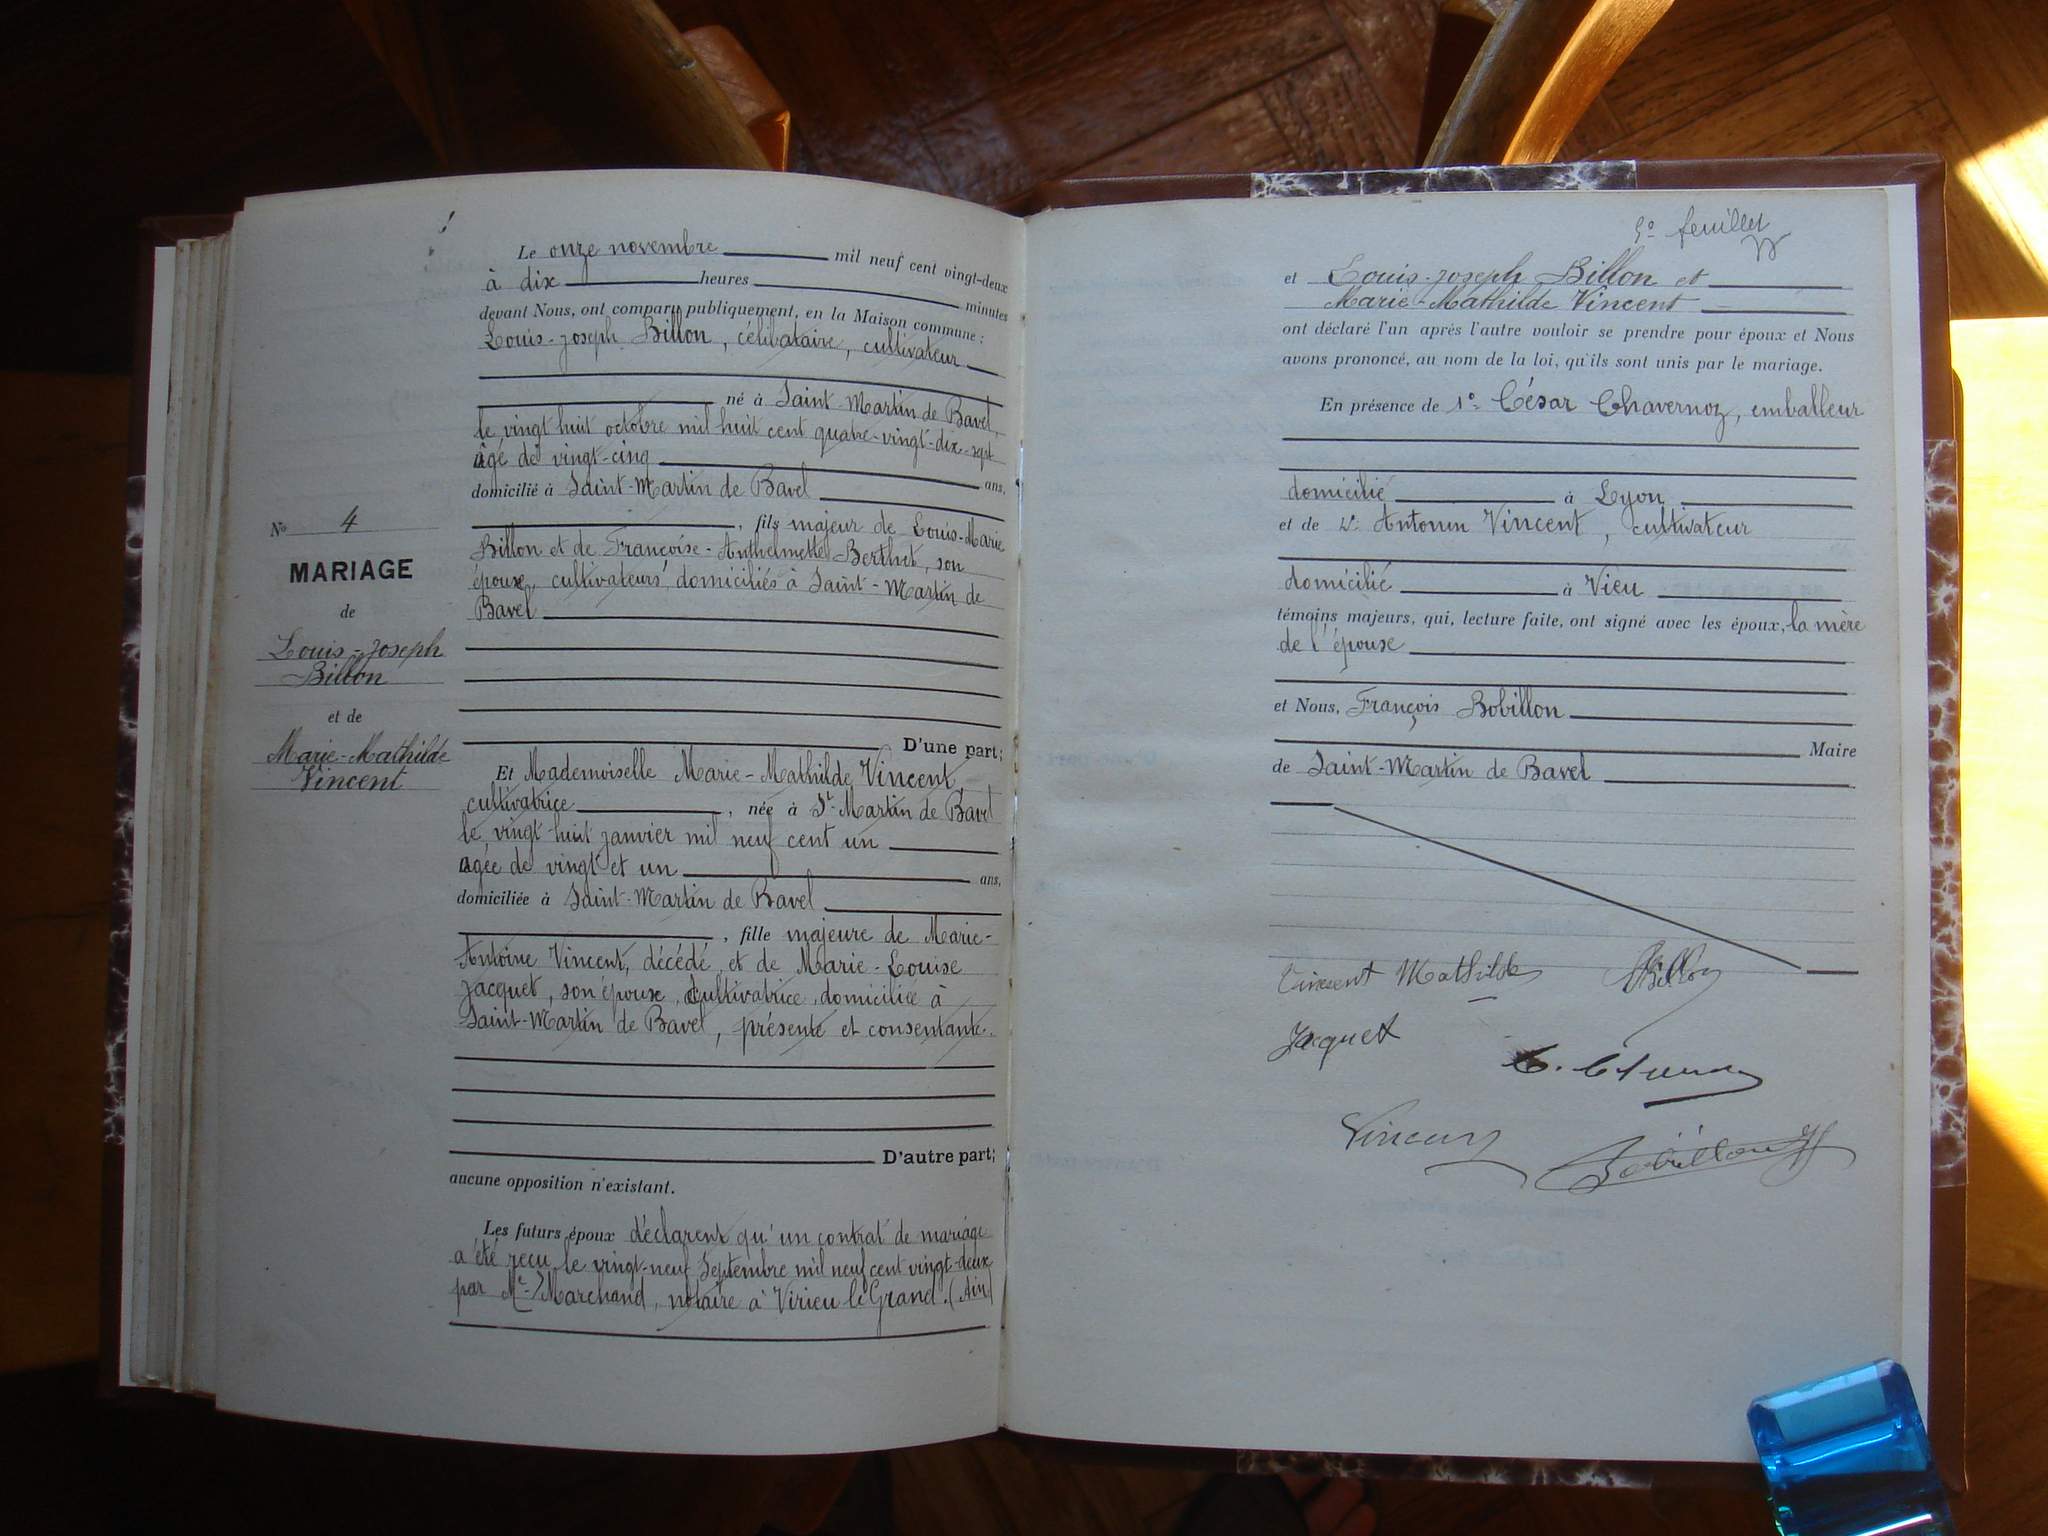 Le onze novembre mil neuf cent vingt-deux
à dix heures minutes
devant Nous, ont comparu publiquement, en la Maison commune :
Louis-Joseph Billon, célibataire, cultivateur
né à Saint-Martin de Bavel,
le vingt huit octobre mil huit cent quatre-vingt-dix-sept
âgé de vingt-cinq ans,
domicilié à Saint-Martin de Bavel
, fils majeur de Louis-Marie
Billon et de Françoise-Anthelmette Berthet, son
épouse, cultivateurs, domiciliés à Saint-Martin de
Bavel
D'une part;
No 4
MARIAGE
de
Louis-Joseph
Billon
et de
Marie-Mathilde
Vincent
Et Mademoiselle Marie-Mathilde Vincent,
cultivatrice, née à St-Martin de Bavel
le vingt huit janvier mil neuf cent un
agée de vingt et un ans,
domiciliée à Saint-Martin de Bavel
, fille majeure de Marie-
Antoine Vincent, décédé, et de Marie-Louise
Jacquet, son épouse, cultivatrice, domiciliée à
Saint-Martin de Bavel, présente et consentante.
D'autre part;
aucune opposition n'existant.
Les futurs époux déclarent qu'un contrat de mariage
a été reçu le vingt-neuf Septembre mil neuf cent vingt-deux
par Me Marchand, notaire à Virieu le Grand. (Ain)
5e feuillet
et Louis-Joseph Billon et
Marie-Mathilde Vincent
ont déclaré l'un après l'autre vouloir se prendre pour époux et Nous
avons prononcé, au nom de la loi, qu'ils sont unis par le mariage.
En présence de 1o César Chavernoz, emballeur
domicilié à Lyon
et de 2o Antonin Vincent, cultivateur
domicilié à Vieu
témoins majeurs, qui, lecture faite, ont signé avec les époux, la mère
de l'épouse
et Nous, François Bobillon
Maire
de Saint-Martin de Bavel
Vincent Mathilde Billon
Jacquet
Vincent Bobillon